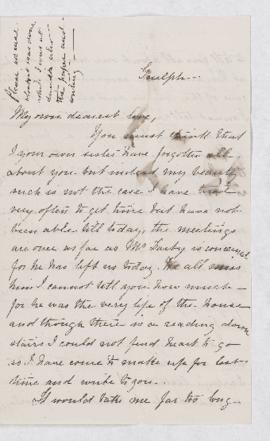 Please excuse
Guelph -
My own dearest love,
You must not think that
I your own sister have forgotten all
about you but indeed my beauty
such is not the case I have tried
very often to get time but have not
been able till today, the meetings
are over as far as Mr is concerned
for he has left us today. We all miss
him I cannot tell you how much -
for he was the very life of the house
and though there is a reading down
stairs I could not find heart to go
so I have come to make up for lost
time and write to you.
It would take me far too long -